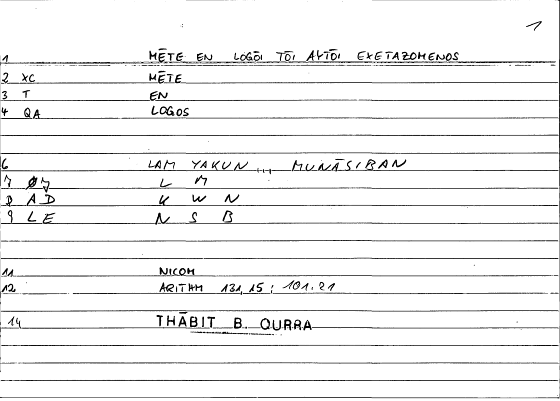 1
1 MĒTE EN LOGŌI TŌI AYTŌI EXETAZOMENOS
2 XC MĒTE
3 T EN
4 QA LOGOS
6 LAM YAKUN ... MUNĀSIBAN
7 Ø7 L M
8 AD K W N
9 LE N S B
11 NICOM
12 ARITHM 131, 15 : 101.21
14 THĀBIT B. QURRA